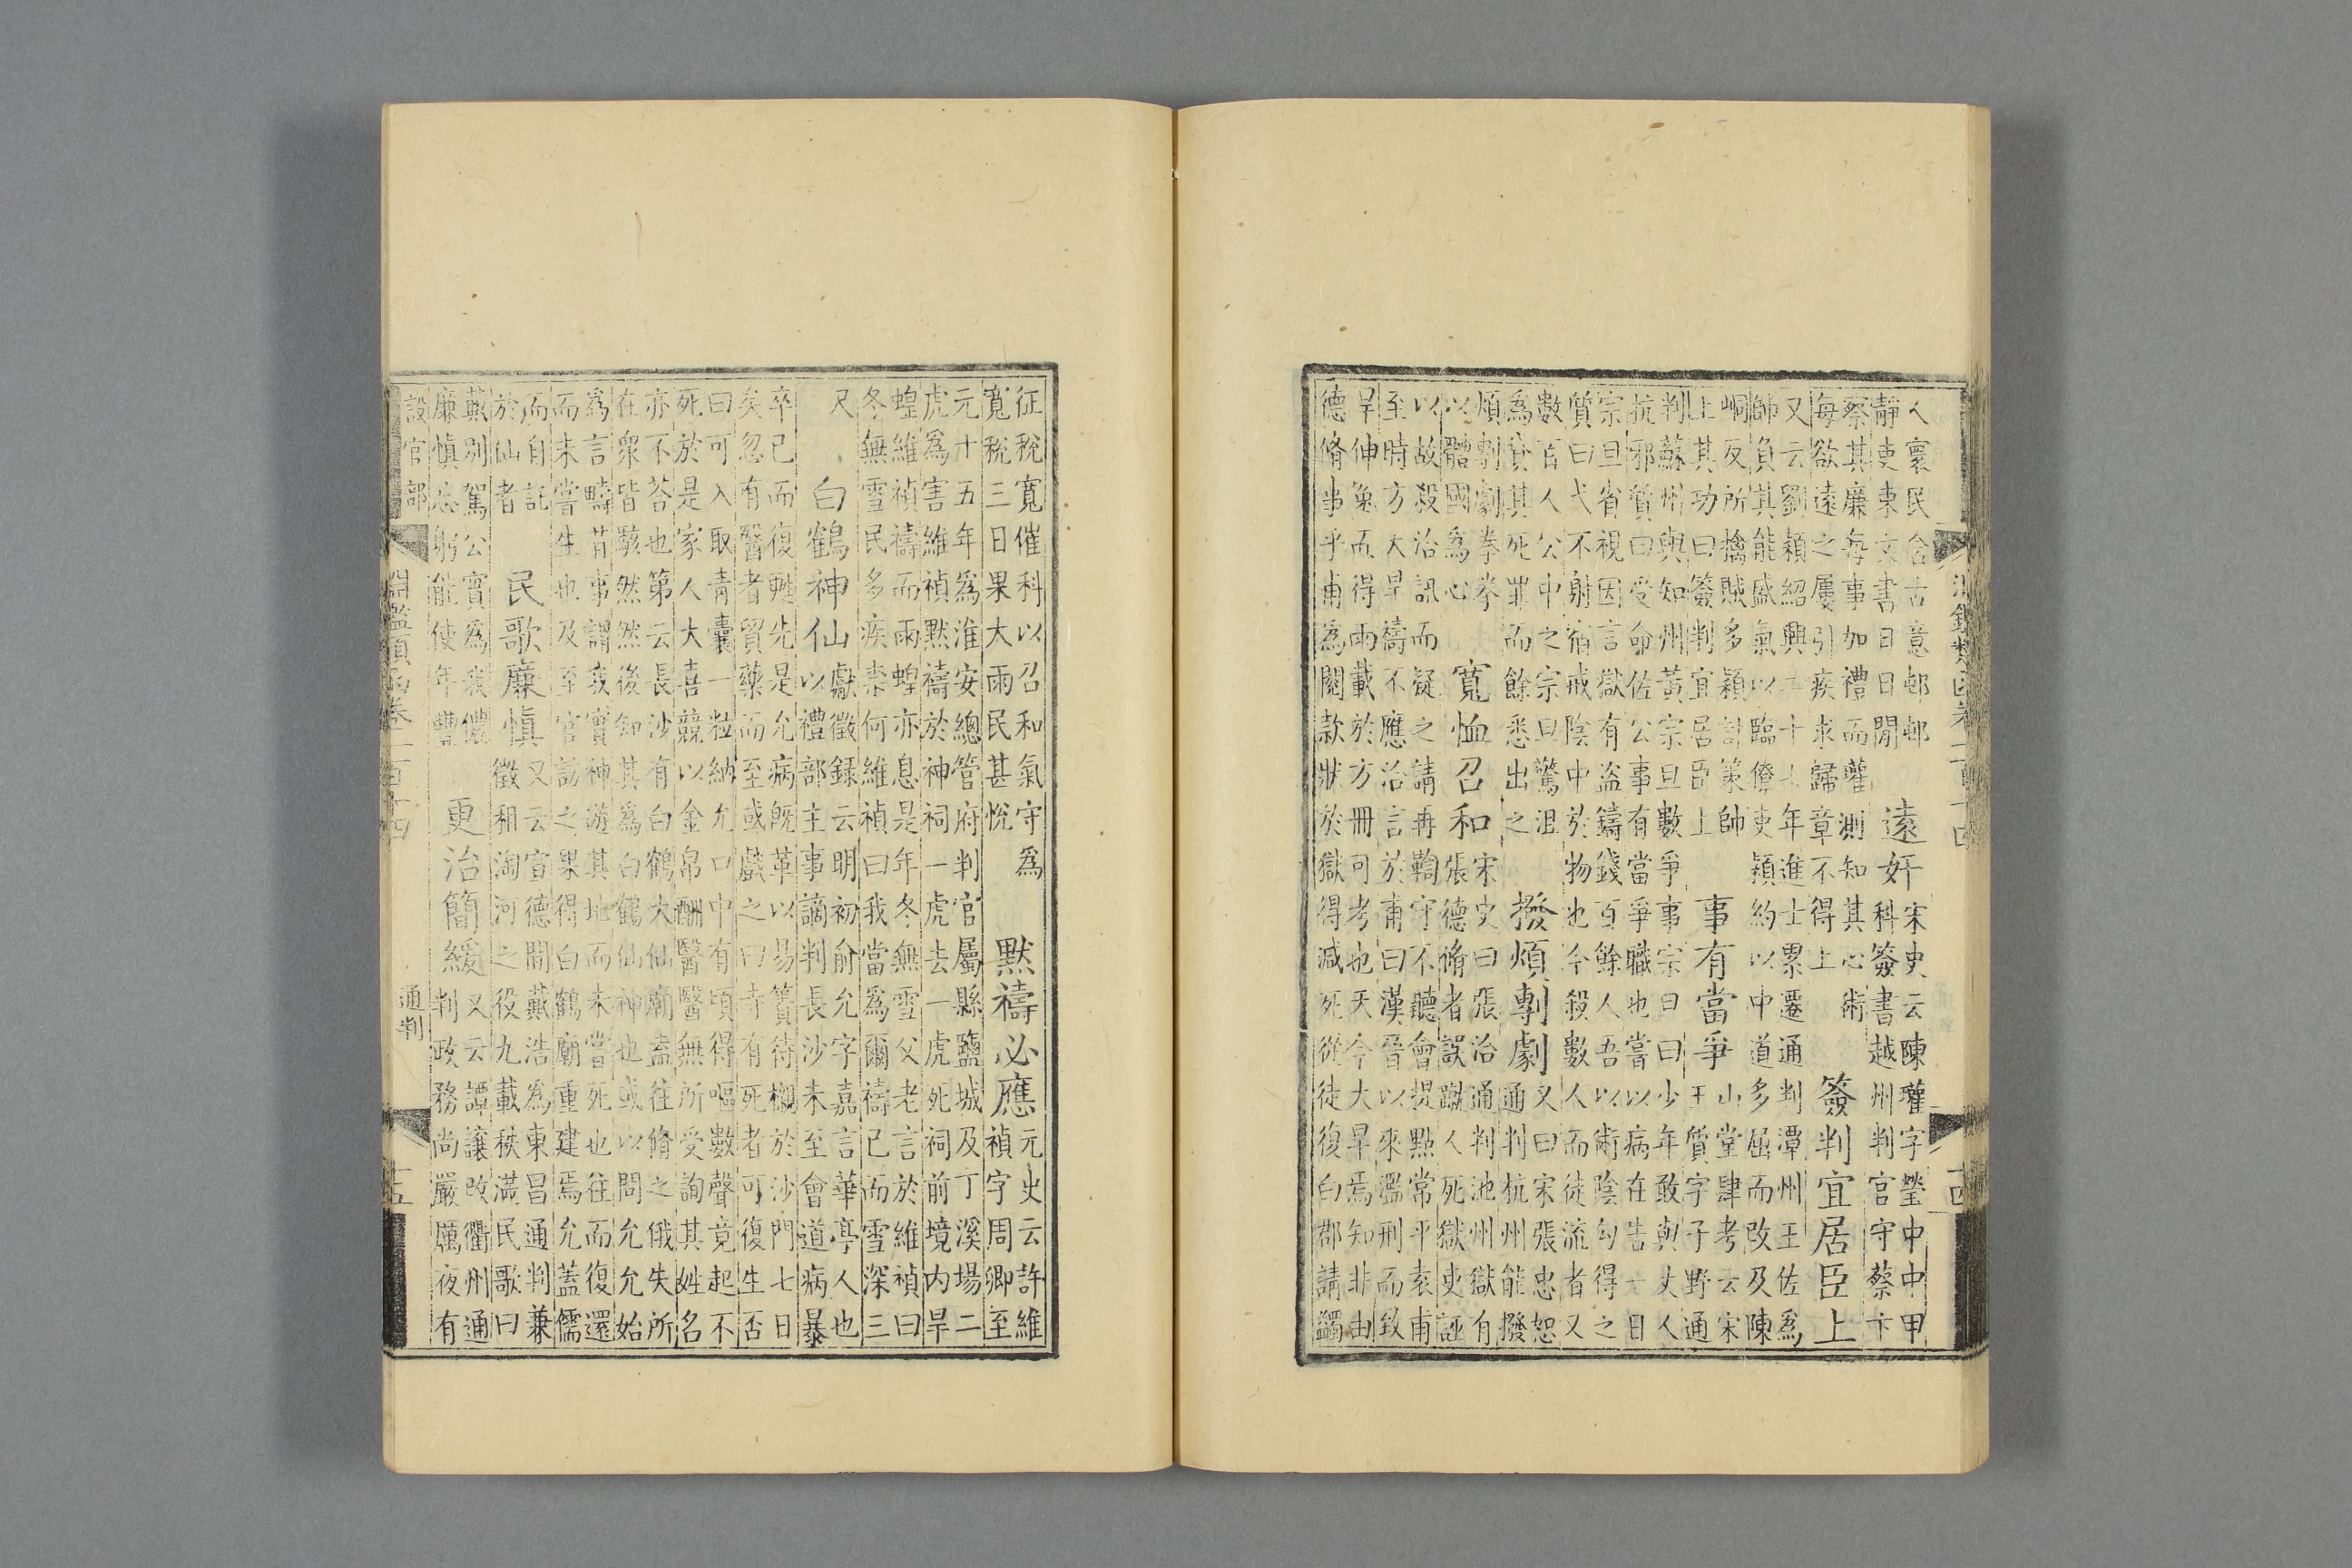 人寰民含古意邨邨
靜吏東文書日日閒
遠奸
宋史云陳瓘字瑩中中甲
科簽書越州判官守蔡卞
察其廉每事加禮而瓘測知其心術
每欲遠之屢引疾求歸章不得上
簽判宜居臣上
又云劉穎紹興二十七年進士累遷通判潭州王佐爲
帥負其能盛氣以臨僚吏穎約以中道多屈而改及陳
峒反所擒賊多穎計策帥
上其功曰簽判宜居臣上
事有當爭
山堂肆考云宋
王質字子野通
判蘇州與知州黃宗旦數爭事宗旦曰少年敢與丈人
抗邪質曰受命佐公事有當爭職也嘗以病在告一日
宗旦省視因言獄有盜鑄錢百餘人吾以術陰勾得之
質曰弋不射宿戒陰中於物也今殺數人而徒流者又
數百人公中之宗旦驚沮
爲貸其死罪而餘悉出之
撥煩剸劇
又曰宋張忠恕
通判杭州能撥
煩剸劇拳拳
以體國爲心
寬恤召和
宋史曰張治通判池州獄有
張德脩者誤蹴人死獄吏誣
以故殺治訊而疑之請再鞫守不聽會提點常平袁甫
至時方大旱禱不應治言於甫曰漢晉以來濫刑而致
旱伸冤而得雨載於方冊可考也天今大旱焉知非由
德脩事乎甫爲閱款狀於獄得減死從徒復白郡請蠲
征稅寬催科以召和氣守爲
寬稅三日果大雨民甚悅
默禱必應
元史云許維
禎字周卿至
元十五年爲淮安總管府判官屬縣鹽城及丁溪場二
虎爲害維禎默禱於神祠一虎去一虎死祠前境內旱
蝗維禎禱而雨蝗亦息是年冬無雪父老言於維禎曰
冬無雪民多疾柰何維禎曰我當爲爾禱已而雪深三
尺
白鶴神仙
獻徵錄云明初俞允字嘉言華亭人也
以禮部主事謫判長沙未至會道病暴
卒已而復甦先是允病旣革以易簀待櫬於沙門七日
矣忽有醫者貿藥而至或戲之曰寺有死者可復生否
曰可入取青囊一粒納允口中有頃得嘔數聲竟起不
死於是家人大喜競以金帛酬醫醫無所受詢其姓名
亦不荅也第云長沙有白鶴大仙廟盍往脩之俄失所
在衆皆駭然然後知其爲白鶴仙神也或以問允允始
爲言疇昔事謂我實神游其地而未嘗死也往而復還
而未嘗生也及至官訪之果得白鶴廟重建焉允蓋儒
而自託
於仙者
民歌廉慎
又云宣德間戴浩爲東昌通判兼
徵租淘河之役九載秩滿民歌曰
戴別駕公實爲我儂
廉慎忘躬能使年豐
更治簡緩
又云譚讓改衢州通
判政務尚嚴厲夜有
設官部
淵鑑類函卷一百十四
通判
十五